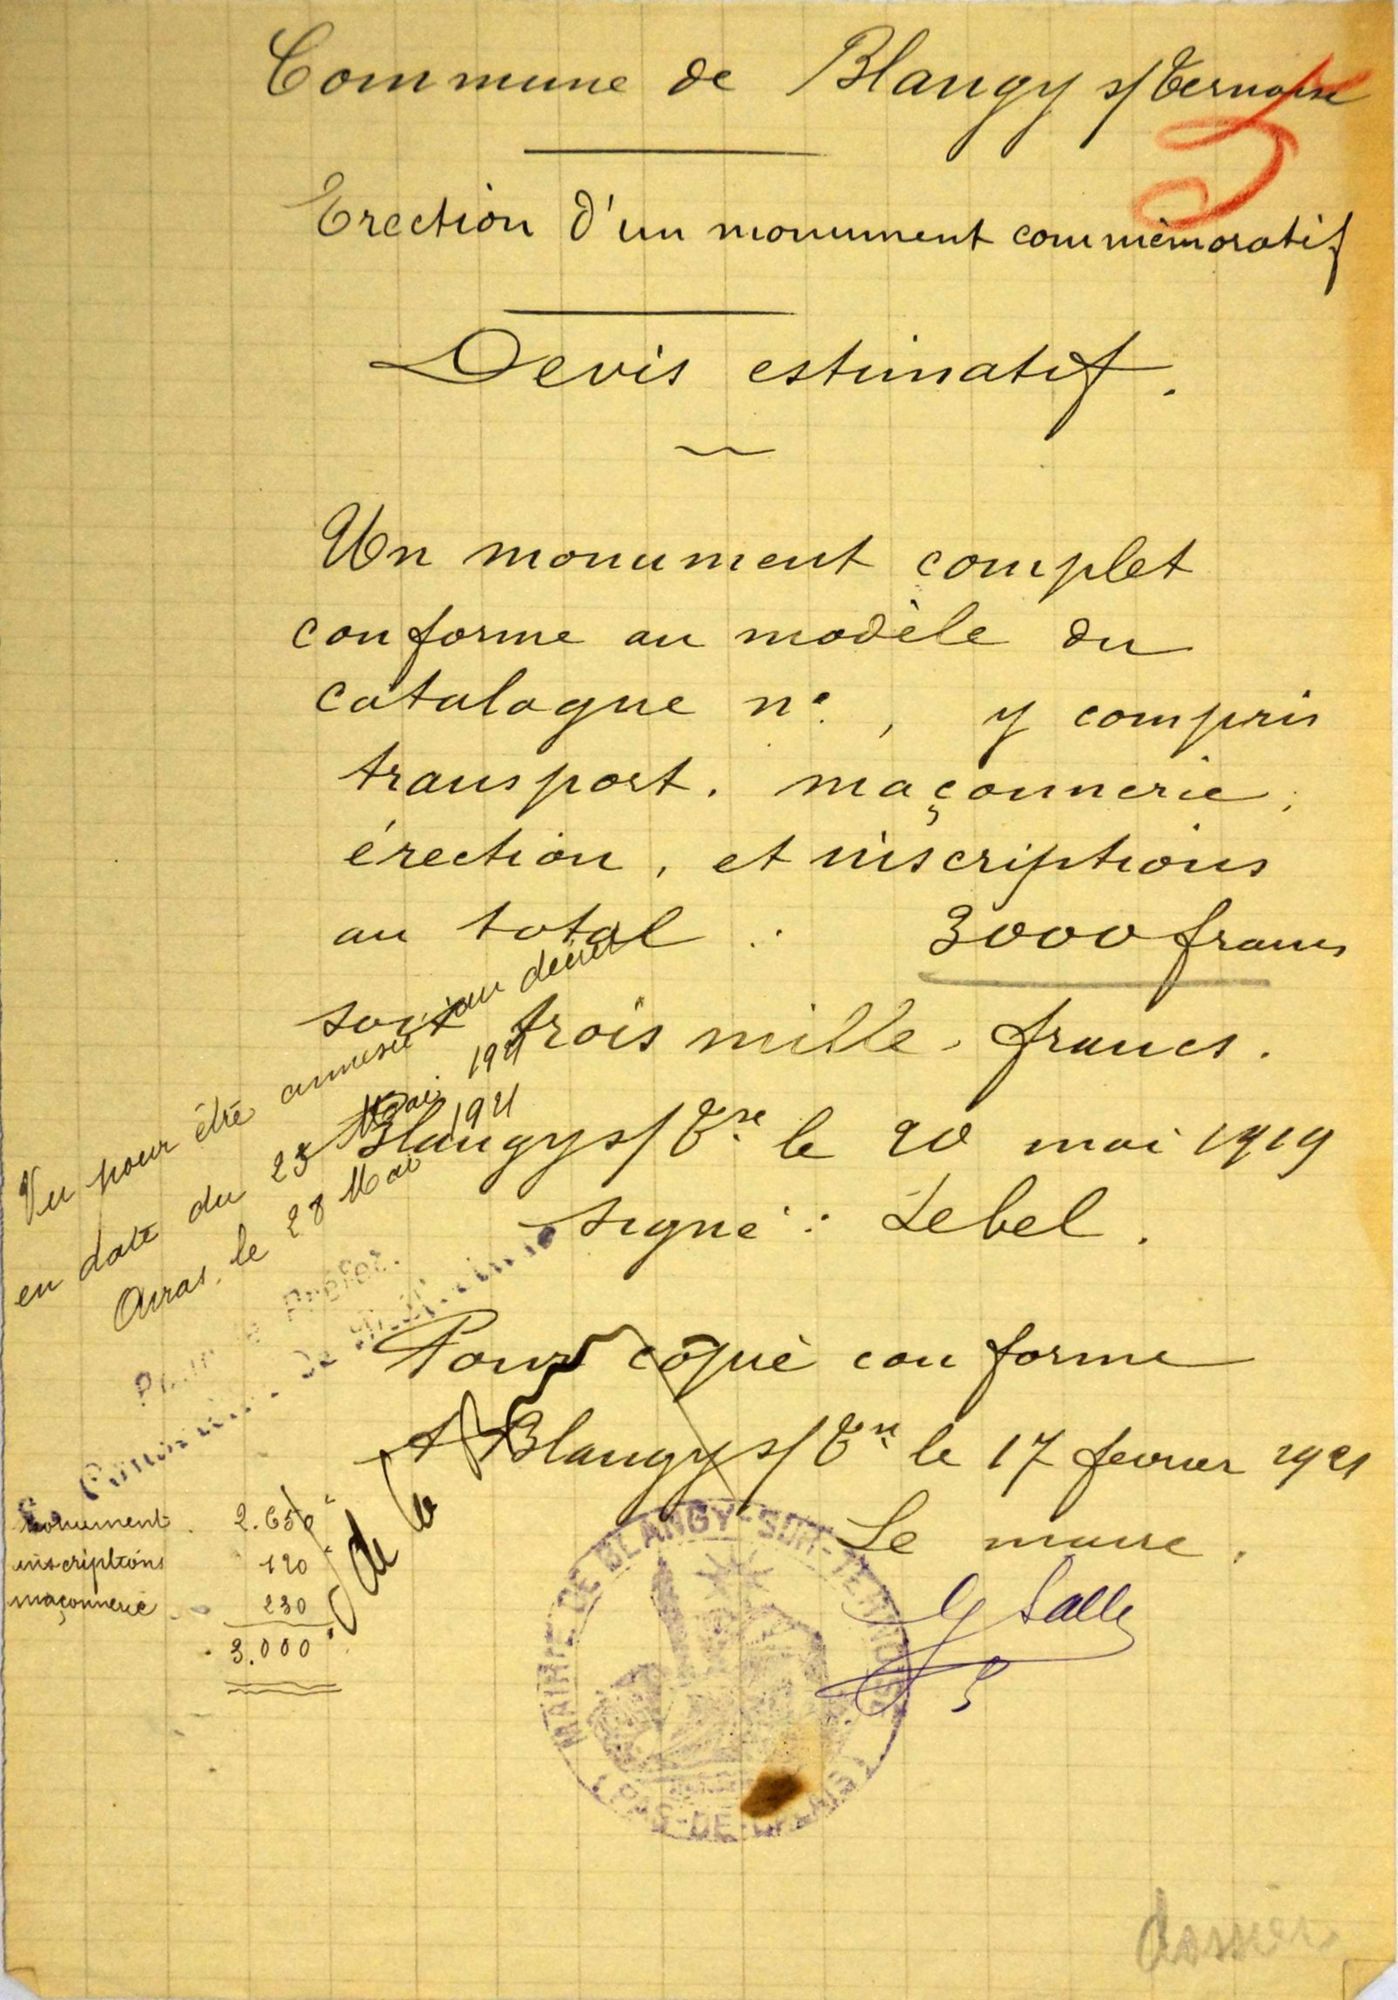 Commune de Blangy s/ Ternoise
Erection d'un monument commémoratif
Devis estimatif.
Un monument complet
conforme au modèle du
catalogue n°. , y compris
transport. maçonnerie,
érection, et inscriptions
au total : 3000 francs
soit trois mille francs.
Blangy s/ Tse le 20 mai 1919
signé : Lebel.
Pour copie conforme
A Blangy s/ Tse le 17 fevrier 1921
Le maire,
G Salle
Vu pour être annexé au décret
en date du 23 Mai 1921
Arras, le 28 Mai 1921
Pour le Préfet.
monument. 2.650
inscriptions 120
maçonnerie 230
3.000
MAIRIE DE BLANGY-SUR-TERNOISE
(PAS-DE-CALAIS)
dossier